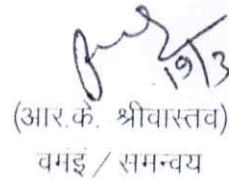 19/3
(आर.के. श्रीवास्तव)
वमइ / समन्वय